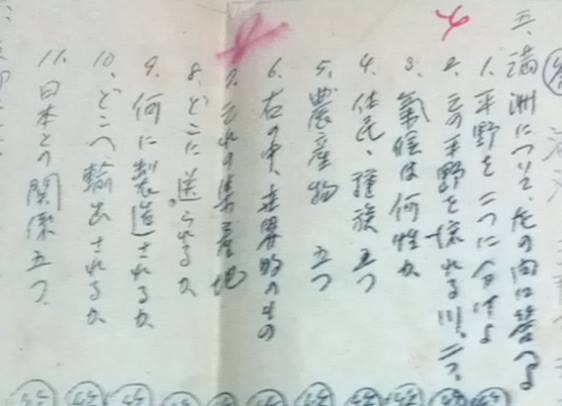 五、満洲について、左の問に答へよ
1. 平野を二つに分けよ
2. この平野を流れる川、二つ、
3. 氣候は何性か
4. 住民、種族 五つ
5. 農産物 五つ
6. 右の中、世界的のもの
7. それの集産地
8. どこに送らるるか
9. 何に製造されるか
10. どこへ輸出されるか
11. 日本との関係 五つ、